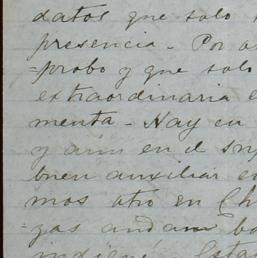 datos que solo
presencia - Por
=probo y que solo
extraordinaria e
menta - Hay en
y aún en el
buen auxiliar en
mos otro en Ch
=gas andan ba